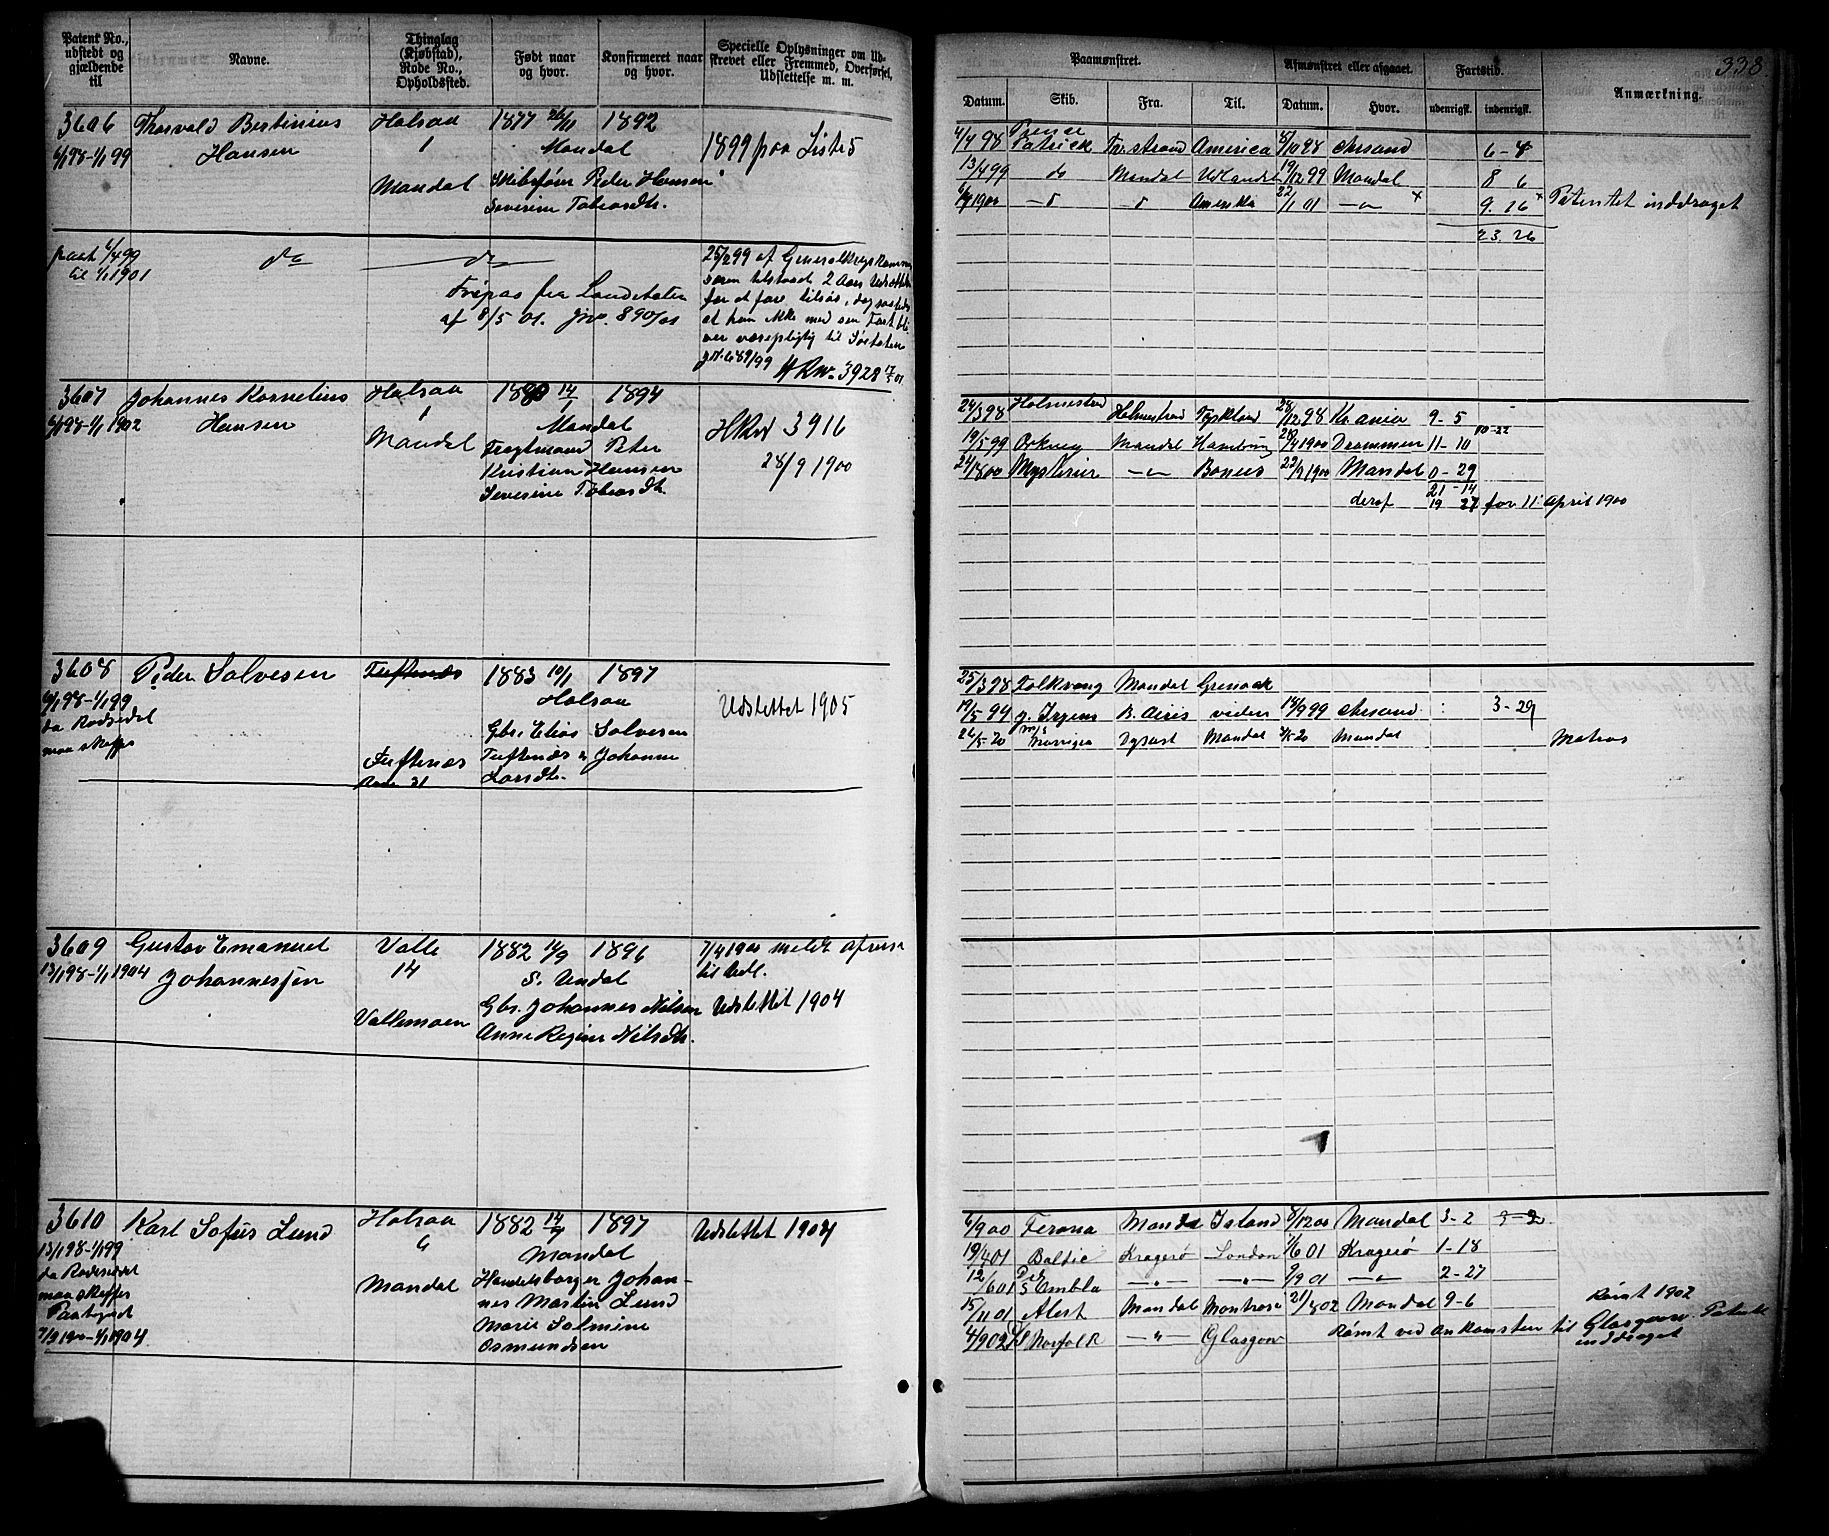 338.
Patent No., udstedt og gjældende til
Navne.
Thinglag (Kjøbstad), Rode No., Opholdssted.
Født naar og hvor.
Konfirmeret naar og hvor.
Specielle Oplysninger om Udskrevet eller Fremmed, Overførsel, Udslettelse m. m.
Paamønstret.
Afmønstret eller afgaaet.
Fartstid.
Anmærkning.
Datum. Skib. Fra. Til. Datum. Hvor. udenrigsk. indenrigsk.
3606 Thorvald Bertinius Halsaa 1877 26/11 1892
6/1 98-1/1 99 Hansen 1 Mandal 1899 paa Liste 5
Mandal Skibsfører Peder Hansen
Severine Tobiasdtr.
4/4 98 Prince Patrick America 8/10 98 Chrsand 6-8
13/4 99 do Mandal Udlandet 19/12 99 Mandal 8 6
1900 Amerika 22/1 01 -"- x 9. 16 x Patentet inddraget
23. 26
paat 4/4 99 do do
til 1/1 1901
Fripas fra Landetaten
af 8/5 01. Jno. 890/01
25/2 99 af Generalkrigskommis
2 Aars Udsættelse
at han ikke med sen Fart bli
ver værnepligtig til Søetaten
HRno. 3928
3607 Johannes Kornelius Halsaa 14/1 1894
6/1 98-1/1 1902 Hansen 1 Mandal HRno 3916
Mandal Fragtmand Peter 28/9 1900
Kristian Hansen
Severine Tobiasdtr.
24/3 98 Holmestrand Holmestrand Tyskland 28/12 98 Kr.ania 9-5
19/5 99 Orkney Mandal Hamburg 1900 Drammen 11-10 10-22
Mysterier -"- Borneus 22/9 1900 Mandal 0-29
21-14
deraf 19 27 før 11 April 1900
3608 Peder Salvesen Tuftenæs 1883 10/1 1897
6/1 98-1/1 99 Halsaa Udslettet 1905
da Rodsedel Gbr. Elias Salvesen
maa skaffes Tuftenæs Tuftenæs & Johanne
Rode 31 Larsdtr.
25/3 98 Folkvang Mandal Grenock
19/5 99 J. Irgens B. Aires viden 14/9 99 Chrsand 3-29
26/5-20 Mandal Mandal Matros
3609 Gustav Emanuel Valle 1882 14/9 1896 7/4 1900 meldt afreise
13/1 98-1/1 1904 Johannessen 14 S. Undal til Udl.
Vallemoen Gbr. Johannes Nilsen Udslettet 1904
Anne Regine Nilsdtr.
3610 Karl Sofus Lund Halsaa 1882 1897 Udslettet 1904
13/1 98-1/1 99 Mandal
da Rodesedel Mandal Handelsborger Johan-
maa skaffes nes Martin Lund
Paategnet Marie Salmine
7/9 1900-1/1 1904 Osmundsen
6/9 00 Ferona Mandal Island 8/12 00 Mandal 3-2 3-2
19/4 01 Baltic Kragerø London 7/6 01 Kragerø 1-18
12/6 01 Ds Embla -"- -"- 9/9 01 -"- 2-27
15/11 01 Alert Mandal Montrose 21/8 02 Mandal 9-6
4/9 02 D/S Norfolk -"- Glasgow Rømt ved ankomsten til Glasgow. Patentet
Rømt 1902
inddraget